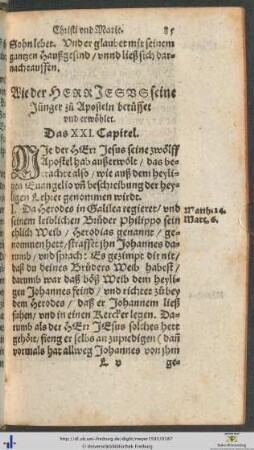 Christi vnd Marie. 85
Sohn lebet. Vnd er glaubet mit seinem
gantzen Haußgesind / vnnd ließ sich dar-
nach tauffen.
Wie der HERR JESVS seine
Jünger zů Aposteln berůffet
vnd erwöhlet.
Das XXI. Capitel.
WJe der HErr Jesus seine zwölff
Apostel hab außerwölt / das be-
trachte also / wie auß dem heyli-
gen Euangelio vñ beschreibung der hey-
ligen Lehrer genommen wirdt.
1. Da Herodes in Galilea regieret / vnd
seinem leiblichen Brůder Philippo sein
ehlich Weib / Herodias genant / ge-
nommen hett / straffet jhn Johannes da-
rumb / vnd sprach: Es gezimpt dir nit /
daß du deines Brůders Weib habest /
darumb war daß böß Weib dem heyli-
gen Johannes feind / vnd richtet zů bey
dem Herodes / daß er Johannem ließ
fahen / vnd in einen Kercker legen. Da-
rumb als der HErr JEsus solches hett
gehört / fieng er selbs an zu predigen (dañ
vormals hat allweg Johannes von jhm
Matth. 14.
Marc. 6.
L v
ge-
http://dl.ub.uni-freiburg.de/diglit/meyer1581/0187
© Universitätsbibliothek Freiburg